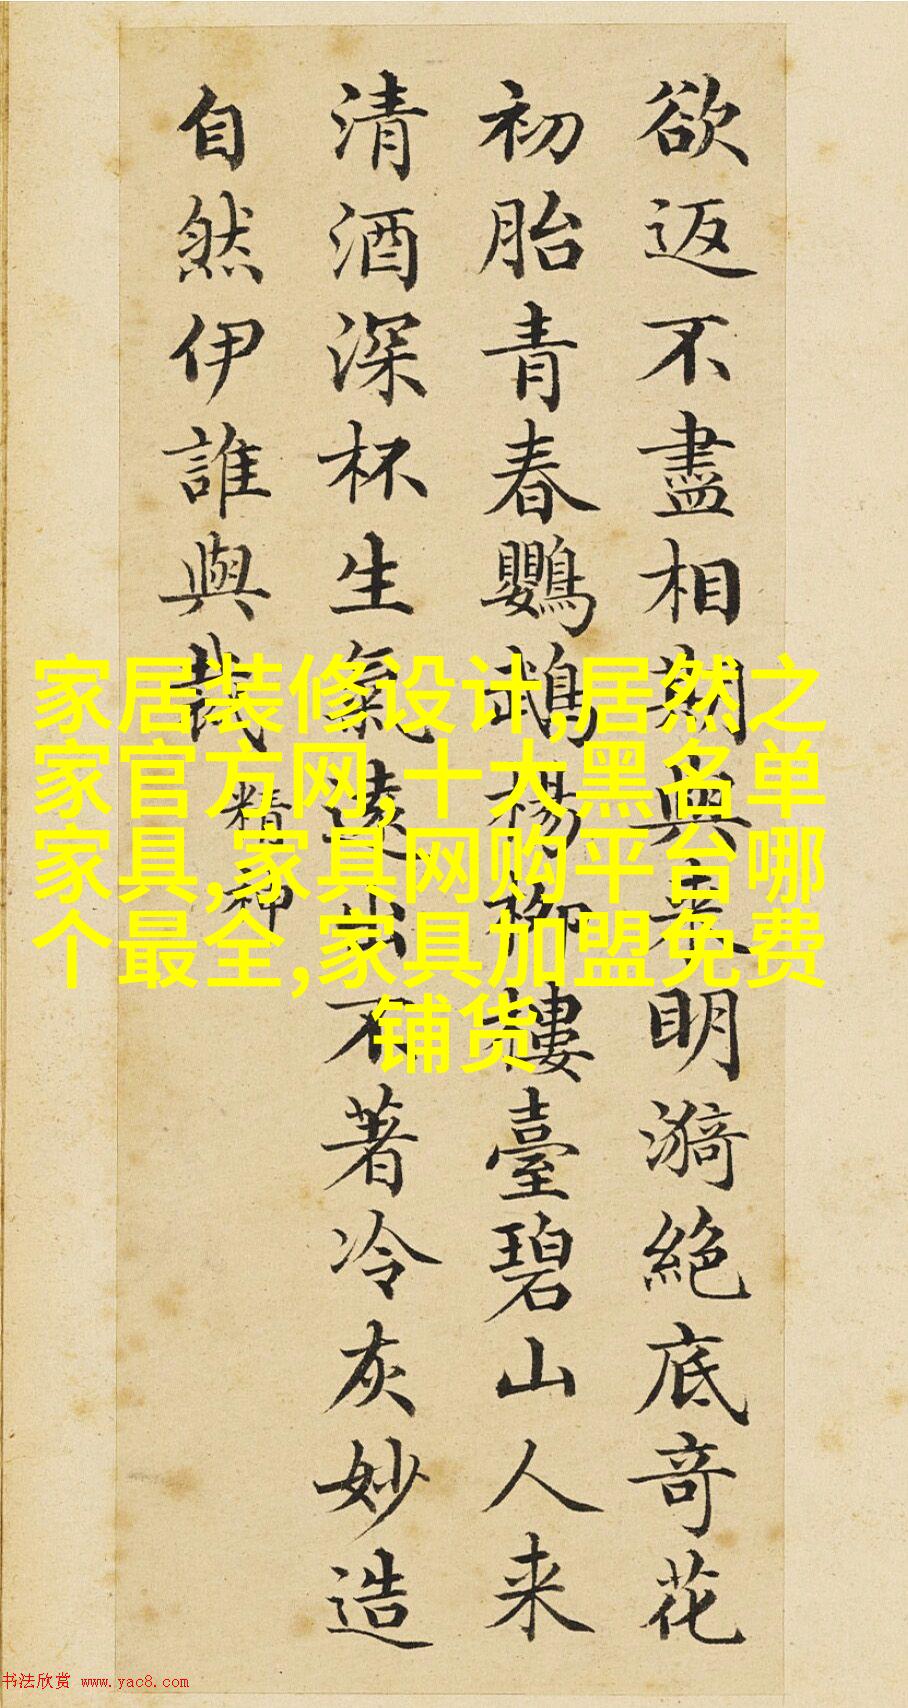 欲返不盡相期與来明漪絕底竒花
初胎青春鸚鵡楊柳樓臺碧山人来
清酒深杯生氣遠出不著冷灰妙造
自然伊誰與裁
精神
家居装修设计,居然之
家官方网,十大黑名单
家具,家具网购平台哪
个最全,家具加盟免费
铺货
书法欣赏 www.yac8.com